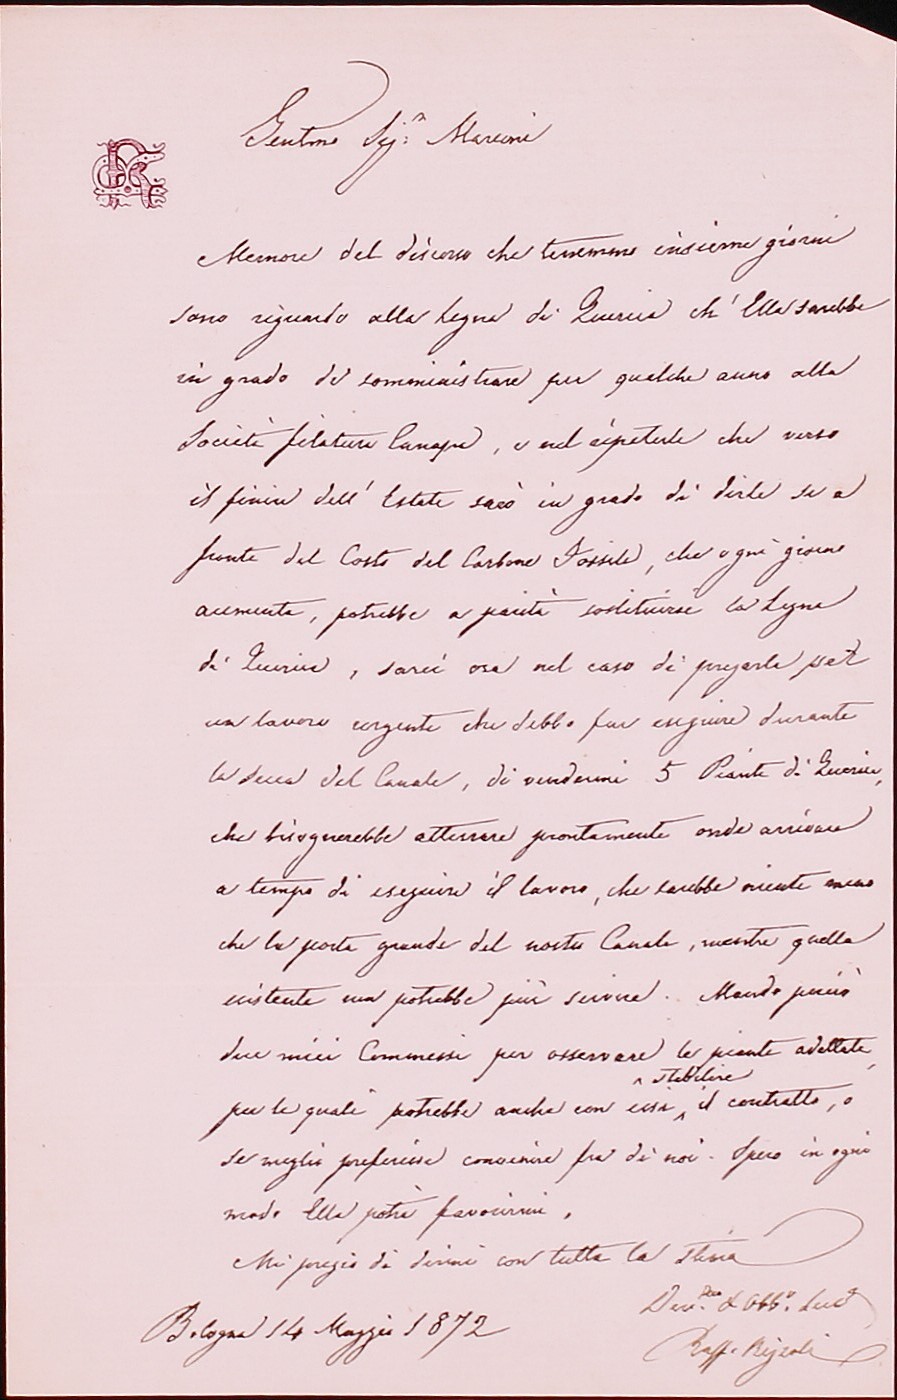 Gentmo Sig:r Marconi
Memore del discorso che tenemmo insieme giorni
sono riguardo alla Legna di Quercia ch' Ella sarebbe
in grado di somministrare per qualche anno alla
Società filatura Canapa, e nel ripeterle che verso
il finire dell' Estate sarò in grado di dirle se a
fronte del Costo del Carbone Fossile, che ogni giorno
aumenta, potrebbe a parità sostituirsi la Legna
di Quercia, sarei ora nel caso di pregarla per
un lavoro urgente che debbo far eseguire durante
la secca del Canale, di vendermi 5 Piante di Quercia,
che bisognerebbe atterrare prontamente onde arrivare
a tempo di eseguire il lavoro, che sarebbe niente meno
che la porta grande del nostro Canale, mentre quella
esistente non potrebbe più servire. Mando perciò
due miei Commessi per osservare le piante adattate,
per le quali potrebbe anche con essi stabilire il contratto, o
se meglio preferisse convenire fra di noi. Spero in ogni
modo Ella potrà favorirmi.
Mi pregio di dirmi con tutta la stima
Dev.mo & Obb.o Serv
Bologna 14 Maggio 1872
Raff. Rizzoli